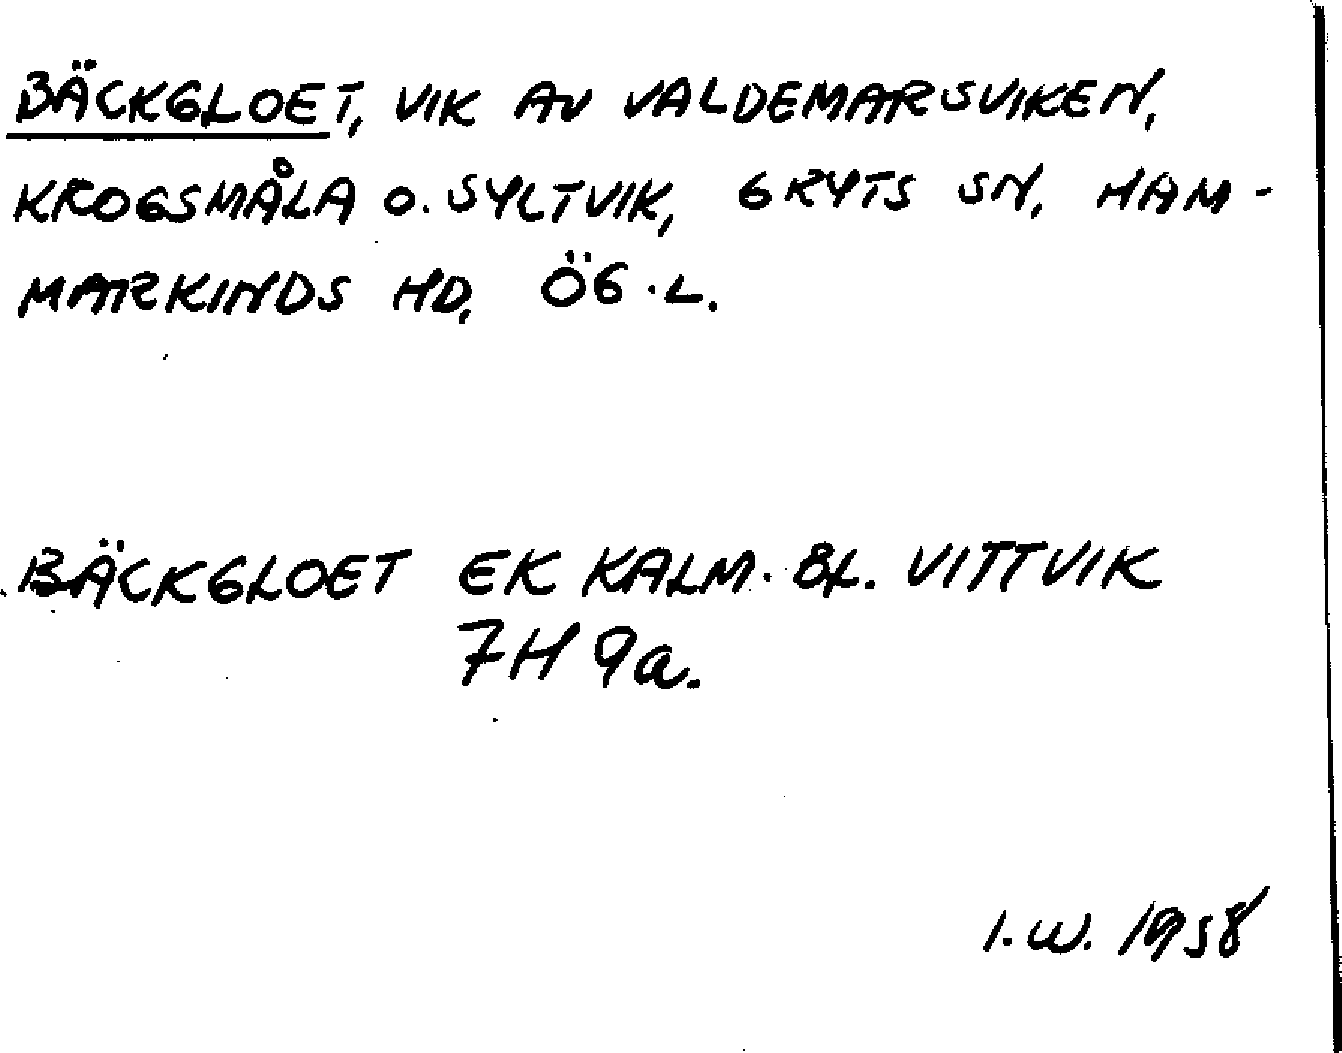 BÄCKGLOET, VIK AV VALDEMARSVIKEN,
KROGSMÅLA O. SYLTVIK, GRYTS SN, HAM-
MARKINDS HD, ÖG.L.
BÄCKGLOET EK KALM. BL. VITTVIK
7H 9a.
I.W. 1958